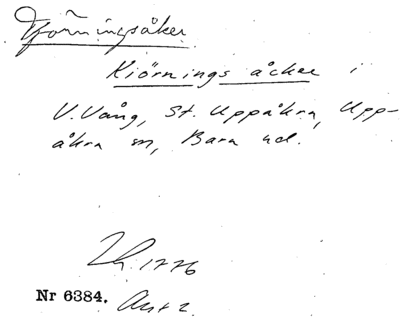 Tjörningsåker
Kiörnings åcker i
V. Vång, St. Uppåkra, Upp-
åkra sn, Bara hd.
1776
Nr 6384. Akt 2